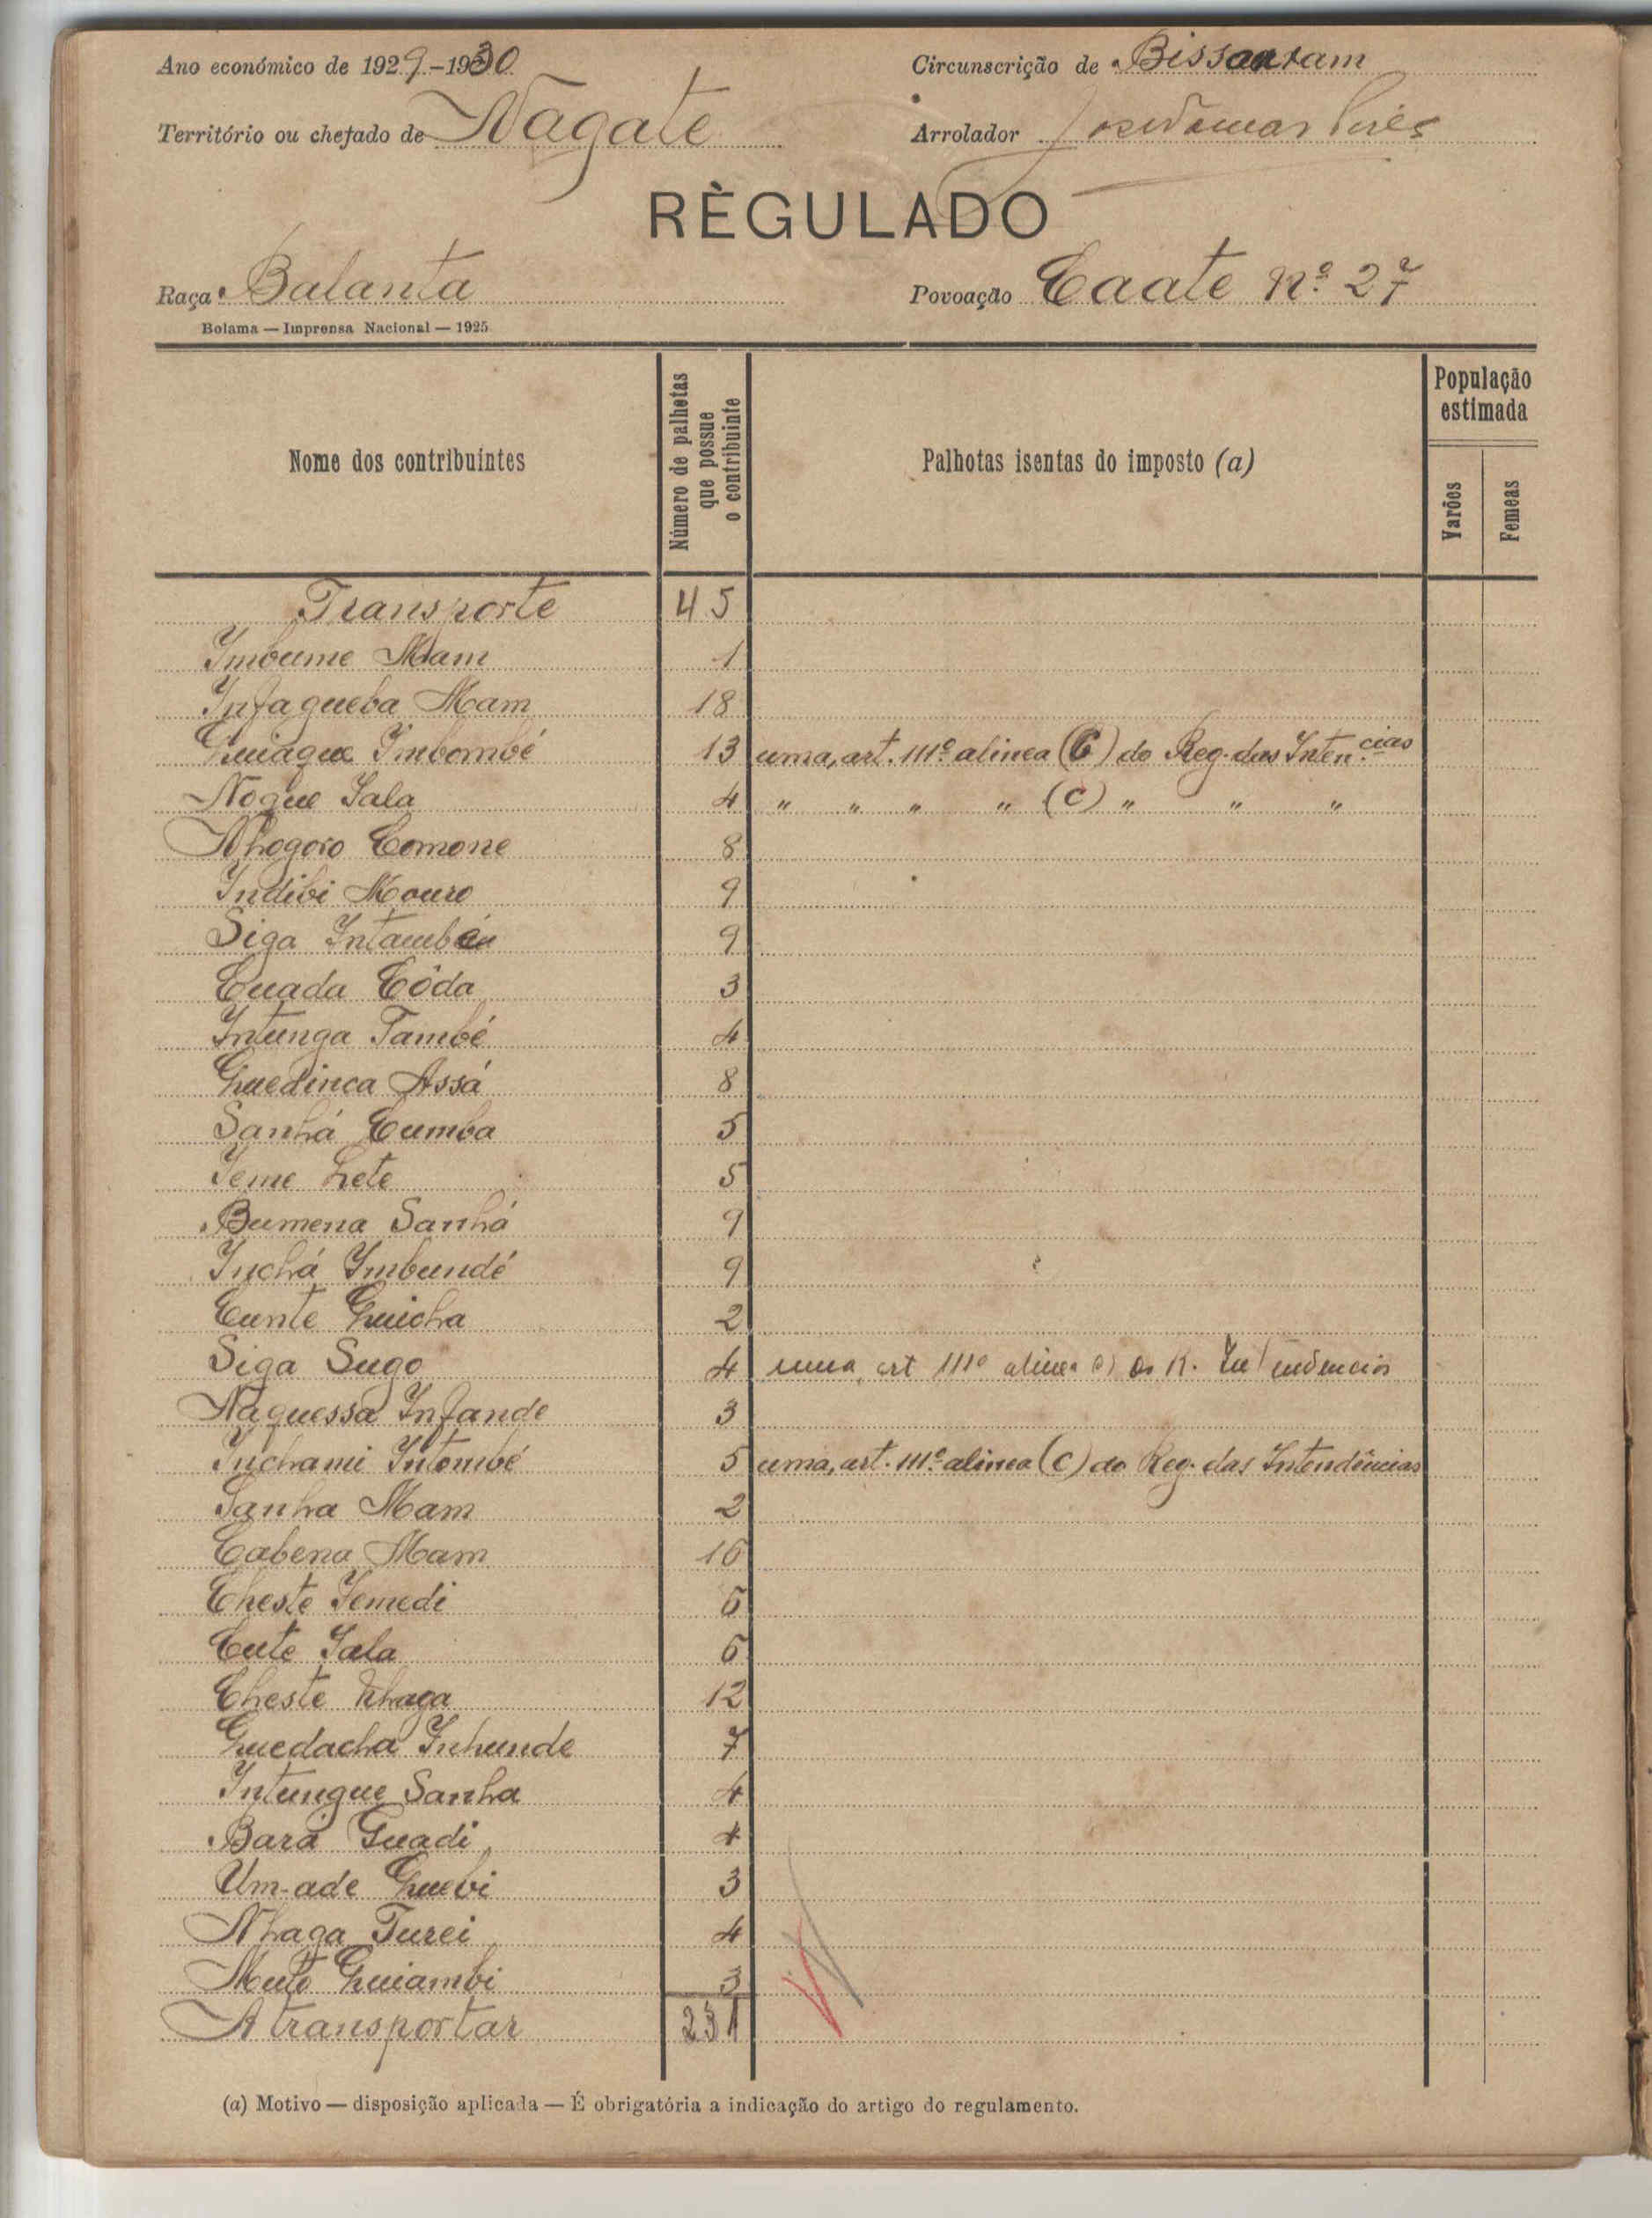 Ano económico de 1929-1930
Circunscrição de Bissauram
Território ou chefado de Nagate
Arrolador
RÈGULADO
Raça Balanta
Povoação Caate Nº 27
Bolama — Imprensa Nacional — 1925
Nome dos contribuintes
Número de palhotas que possue o contribuinte
Palhotas isentas do imposto (a)
População estimada
Varões
Femeas
Transporte 45
Imbume Mam 1
Infagueba Mam 18
Guiague Imbombé 13 uma, art. 111º alinea (C) do Reg. das Inten.cias
Nogue Iala 4 " " " " (C) " " "
Nhogoro Comone 8
Indibi Mouro 9
Siga 9
Cuada Côda 3
Intunga També 4
Guedinca Assá 8
Sanhá Cumba 5
Ieme Lete 5
Bumena Sanhá 9
Inchá Imbundé 9
Cunte Guicha 2
Siga Sugo 4 uma, art 111º alinea c) do R. Intendencias
Naguessa Infande 3
Inchami Intombé 5 uma, art. 111º alinea (C) do Reg. das Intendências
Sanha Mam 2
Cabena Mam 16
Cheste Iemedi 6
Cute Iala 6
Cheste Nhaga 12
Guedacha Inhunde 7
Intungue Sanha 4
Bara Guadi 4
Um-ade Guebi 3
Nhaga Turei 4
Muto Guiambi 3
A transportar 231
(a) Motivo — disposição aplicada — É obrigatória a indicação do artigo do regulamento.